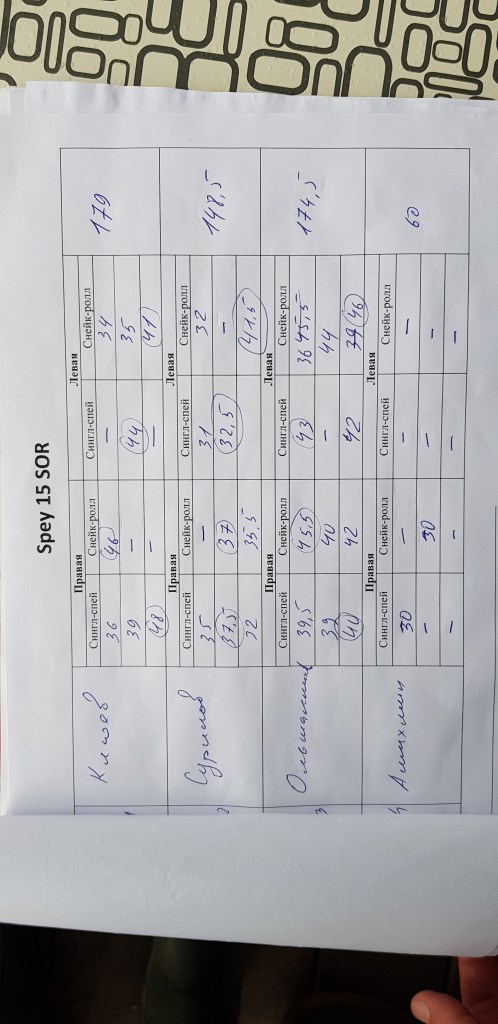 Spey 15 SOR
Правая Левая
Сингл-спей Снейк-ролл Сингл-спей Снейк-ролл
1 36 46 — 34 179
39 — 44 35
48 — — 41
Правая Левая
Сингл-спей Снейк-ролл Сингл-спей Снейк-ролл
2 Сурилов 35 — 31 32 148,5
37,5 37 32,5 —
32 35,5 41,5
Правая Левая
Сингл-спей Снейк-ролл Сингл-спей Снейк-ролл
3 39,5 45,5 43 36 45,5 174,5
39 40 — 44
40 42 42 39 46
Правая Левая
Сингл-спей Снейк-ролл Сингл-спей Снейк-ролл
4 30 — — — 60
— 30 — —
— — — —